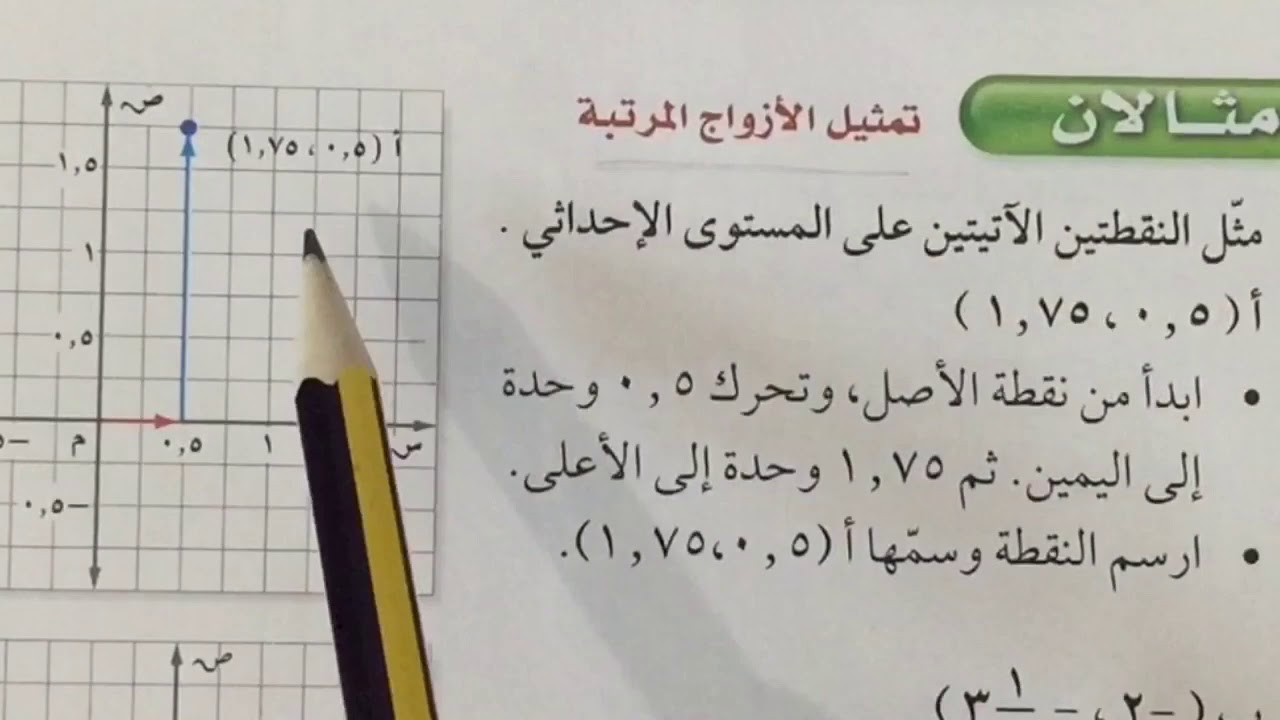 مثـالان
تمثيل الأزواج المرتبة
مثّل النقطتين الآتيتين على المستوى الإحداثي .
أ (٠,٥ ، ١,٧٥)
• ابدأ من نقطة الأصل، وتحرك ٠,٥ وحدة
إلى اليمين. ثم ١,٧٥ وحدة إلى الأعلى.
• ارسم النقطة وسمّها أ (٠,٥ ، ١,٧٥).
ب (–٢ ، –٣ ١
ص
أ (٠,٥ ، ١,٧٥)
١,٥
١
٠,٥
م ٠,٥ ١ س
–٠,٥
ص